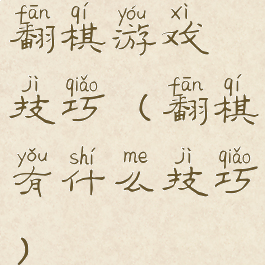 fān qí yóu xì
翻棋游戏
jì qiǎo fān qí
技巧（翻棋
yǒu shí me jì qiǎo
有什么技巧
）